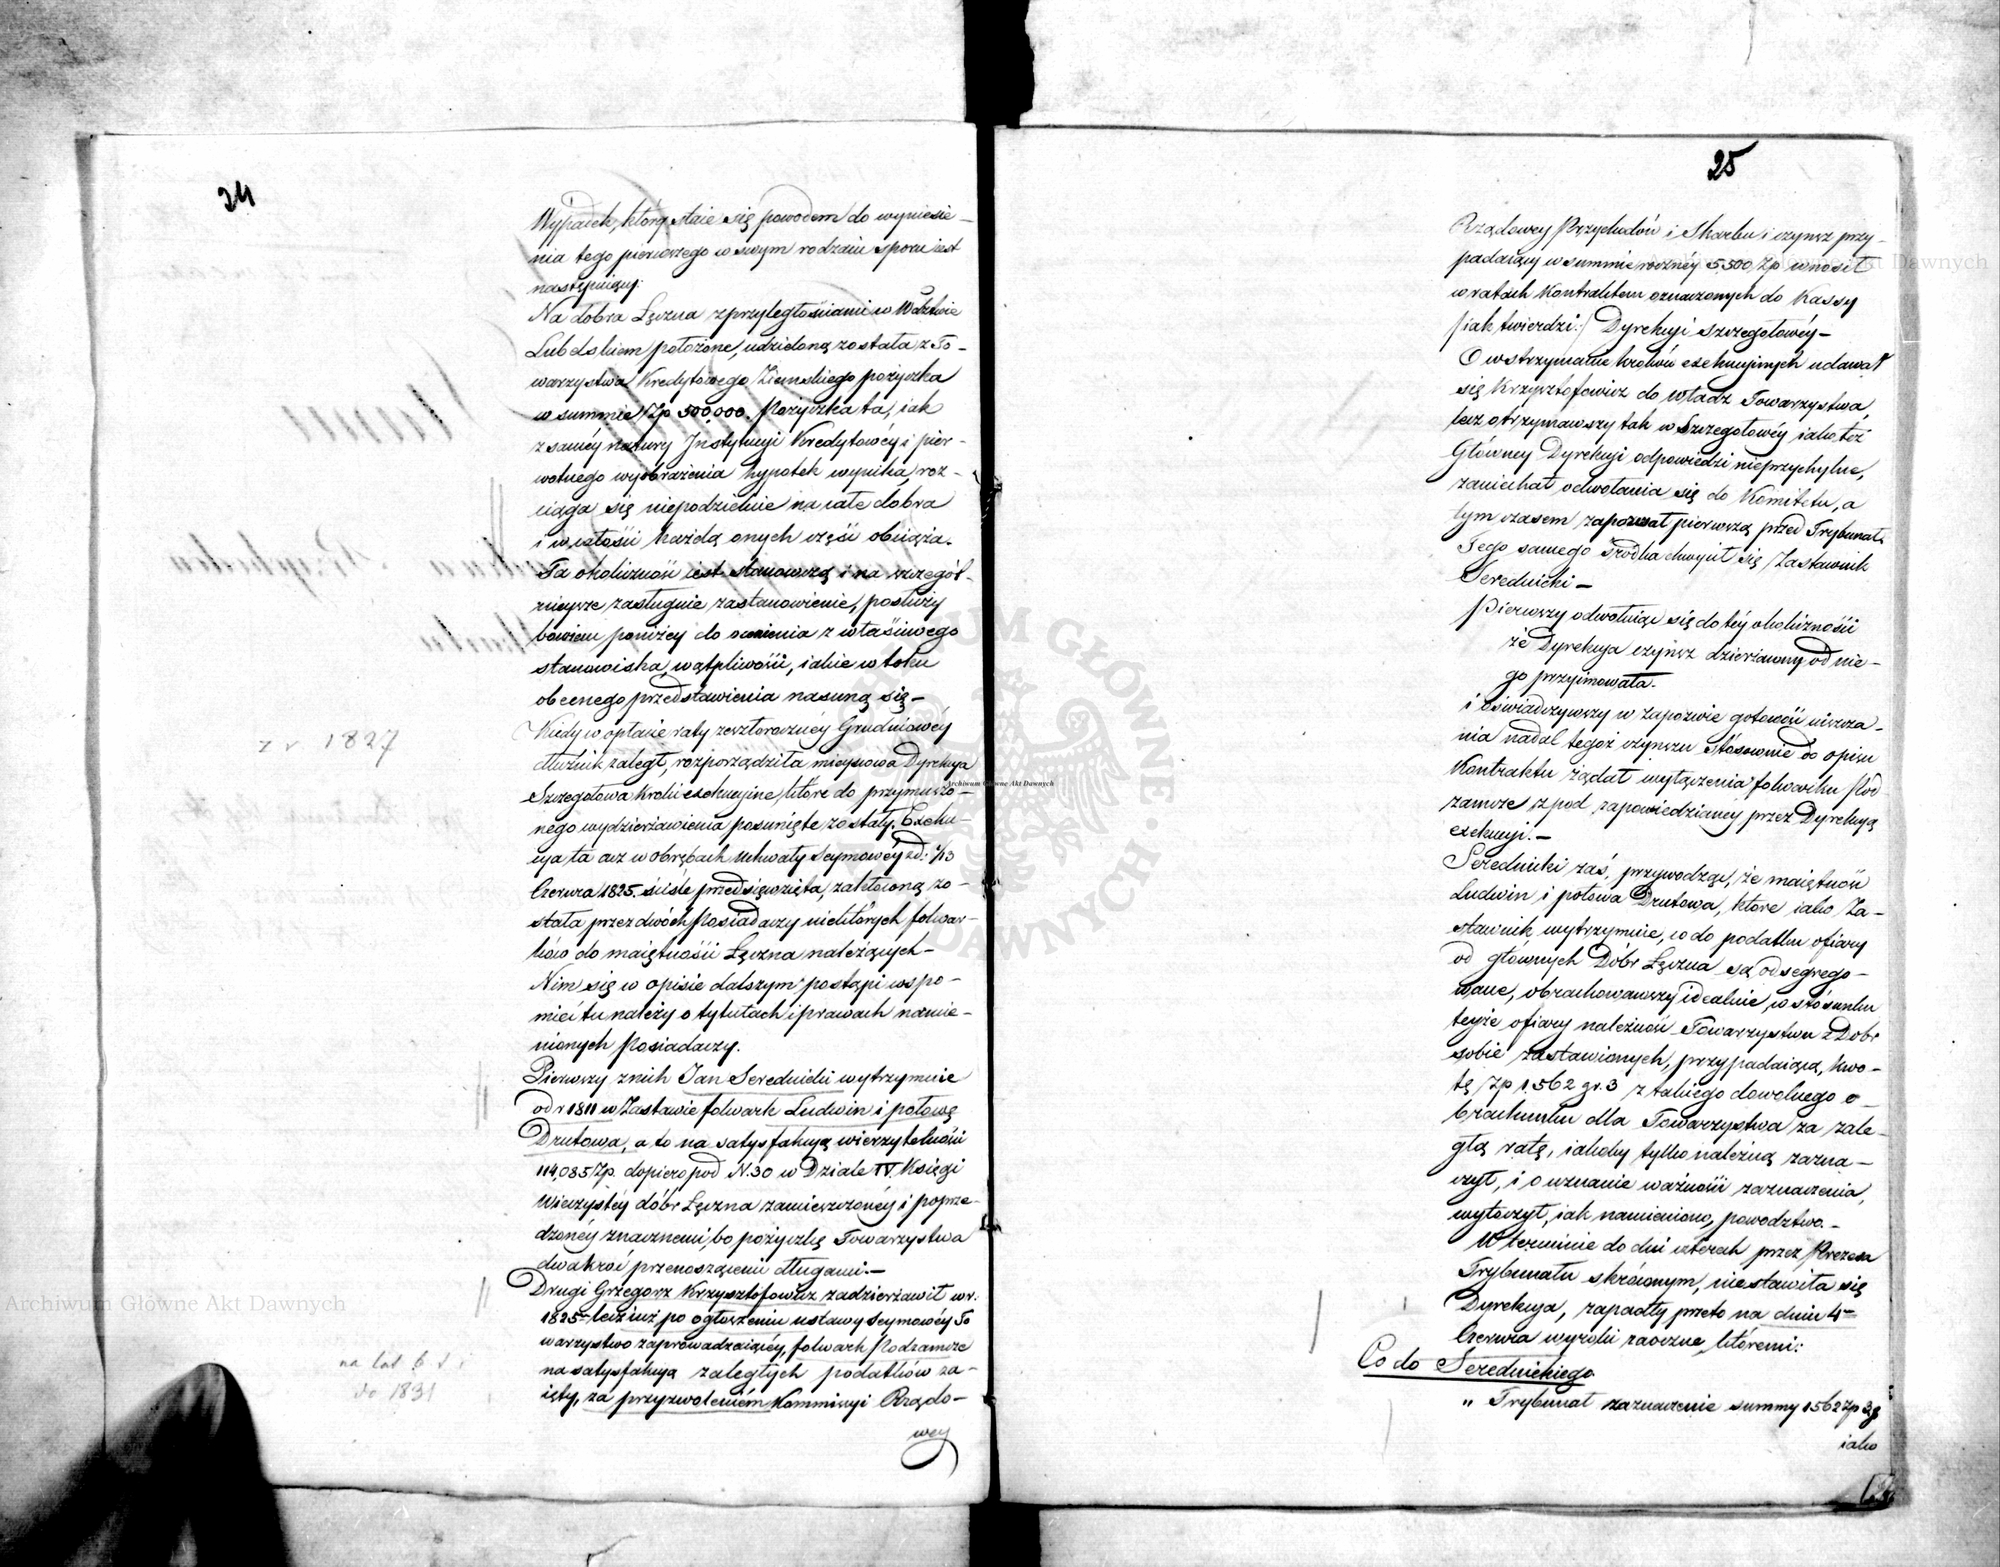 24
Wypadek, który staie się powodem do wyniesie-
nia tego pierwszego w swym rodzaiu sporu iest
następuiący:
Na dobra Łęczna z przyległościami w Wdztwie
Lubelskiem położone, udzieloną została z To-
warzystwa Kredytowego Ziemskiego pożyczka
w summie Zp 500,000. Pożyczka ta, iak
z saméy natury Instytucyi Kredytowéy i pier-
wotnego wyobrażenia hypotek wynika, roz-
ciąga się niepodzielnie na całe dobra
i w całości każdą onych część obciąża.
Ta okoliczność iest stanowczą i na szczegól-
nieysze zasługuie zastanowienie, posłuży
bowiem poniżey do ocenienia z właściwego
stanowiska, wątpliwości, iakie w toku
obecnego przedstawienia nasuną się –
Kiedy w opłacie raty zeszłorocznéy Grudniowéy
dłużnik zaległ, rozporządziła mieyscowa Dyrekcya
Szczegołowa kroki exekucyine, które do przymuszo-
nego wydzierżawienia posunięte zostały. Exeku-
cya ta acz w obrębach Uchwały Seymowéy z d: 1/13
Czerwca 1825. ściśle przedsięwzięta, zakłóconą zo-
stała przez dwóch Posiadaczy niektórych folwar-
ków do maiętności Łęczna należących –
Nim się w opisie dalszym postąpi wspo-
mieć tu należy o tytułach i prawach namie-
nionych Posiadaczy.
Pierwszy z nich Jan Serednicki wytrzymuie
od r 1811 w Zastawie folwark Ludwin i połowę
Drutowa, a to na satysfakcyą wierzytelności
114,085 Zp. dopiero pod N. 30 w Dziale IV. Księgi
Wieczystéy dóbr Łęczna zamieszczonéy i poprze-
dzonéy znacznemi, bo pożyczkę Towarzystwa
dwakroć przenoszącemi długami. –
Drugi Grzegorz Krzysztofowicz zadzierżawił w r.
1825 – lecz iuż po ogłoszeniu ustawy Seymowéy To
warzystwo zaprowadzaiącéy, folwark Podzamcze
na satysfakcyą zaległych podatków za-
ięty, za przyzwoleniem Kommissyi Rządo-
wey
z r. 1827
na lat 6 t. i.
do 1831
25
Rządowey Przychodów i Skarbu i czynsz przy-
padaiący w summie roczney 5,500 Zp wnosił
w ratach Kontraktem oznaczonych do Kassy
/iak twierdzi:/ Dyrekcyi szczegołowéy –
O wstrzymanie kroków exekucyinych udawał
się Krzysztofowicz do władz Towarzystwa,
lecz otrzymawszy tak w Szczegołowéy iako też
Główney Dyrekcyi odpowiedzi nieprzychylne,
zaniechał odwołania się do Komitetu, a
tym czasem zapozwał pierwszą przed Trybunał.
Tego samego środka chwycił się Zastawnik
Serednicki –
Pierwszy odwołuiąc się do téy okoliczności
że Dyrekcya czynsz dzierżawny od nie-
go przyimowała.
i oświadczywszy w zapozwie gotowość uiszcza-
nia nadal tegoż czynszu stósownie do opisu
Kontraktu żądał wyłączenia folwarku Pod
zamcze z pod zapowiedzianéy przez Dyrekcyą
exekucyi. –
Serednicki zaś, przywodząc, że maiętność
Ludwin i połowa Drutowa, które iako Za-
stawnik wytrzymuie, co do podatku ofiary
od głównych Dóbr Łęczna są odsegrego-
wane, obrachowawszy idealnie, w stósunku
teyże ofiary należność Towarzystwu z Dobr
sobie zastawionych, przypadaiącą, kwo-
tę Zp 1562 gr. 3 z takiego dowolnego o-
brachunku dla Towarzystwa za zale-
głą ratę, iakoby tylko należną zazna-
czył, i o uznanie ważności zaznaczenia,
wytoczył, iak namieniono, powództwo. –
W terminie do dni czterech przez Prezesa
Trybunału skróconym, niestawiła się
Dyrekcya, zapadły przeto na dniu 4o
Czerwca wyroki zaoczne, któremi:
Co do Serednickiego.
" Trybunał zaznaczenie summy 1562 Zp 3 g
iako
Archiwum Główne Akt Dawnych